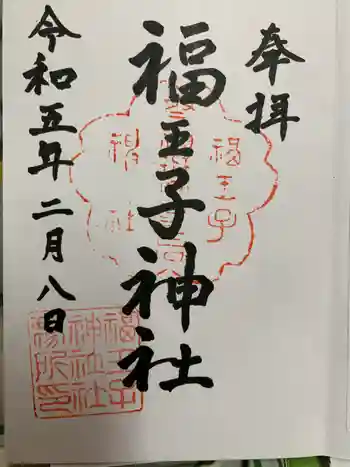 奉拝
福王子神社
令和五年二月八日
福王子
神社社